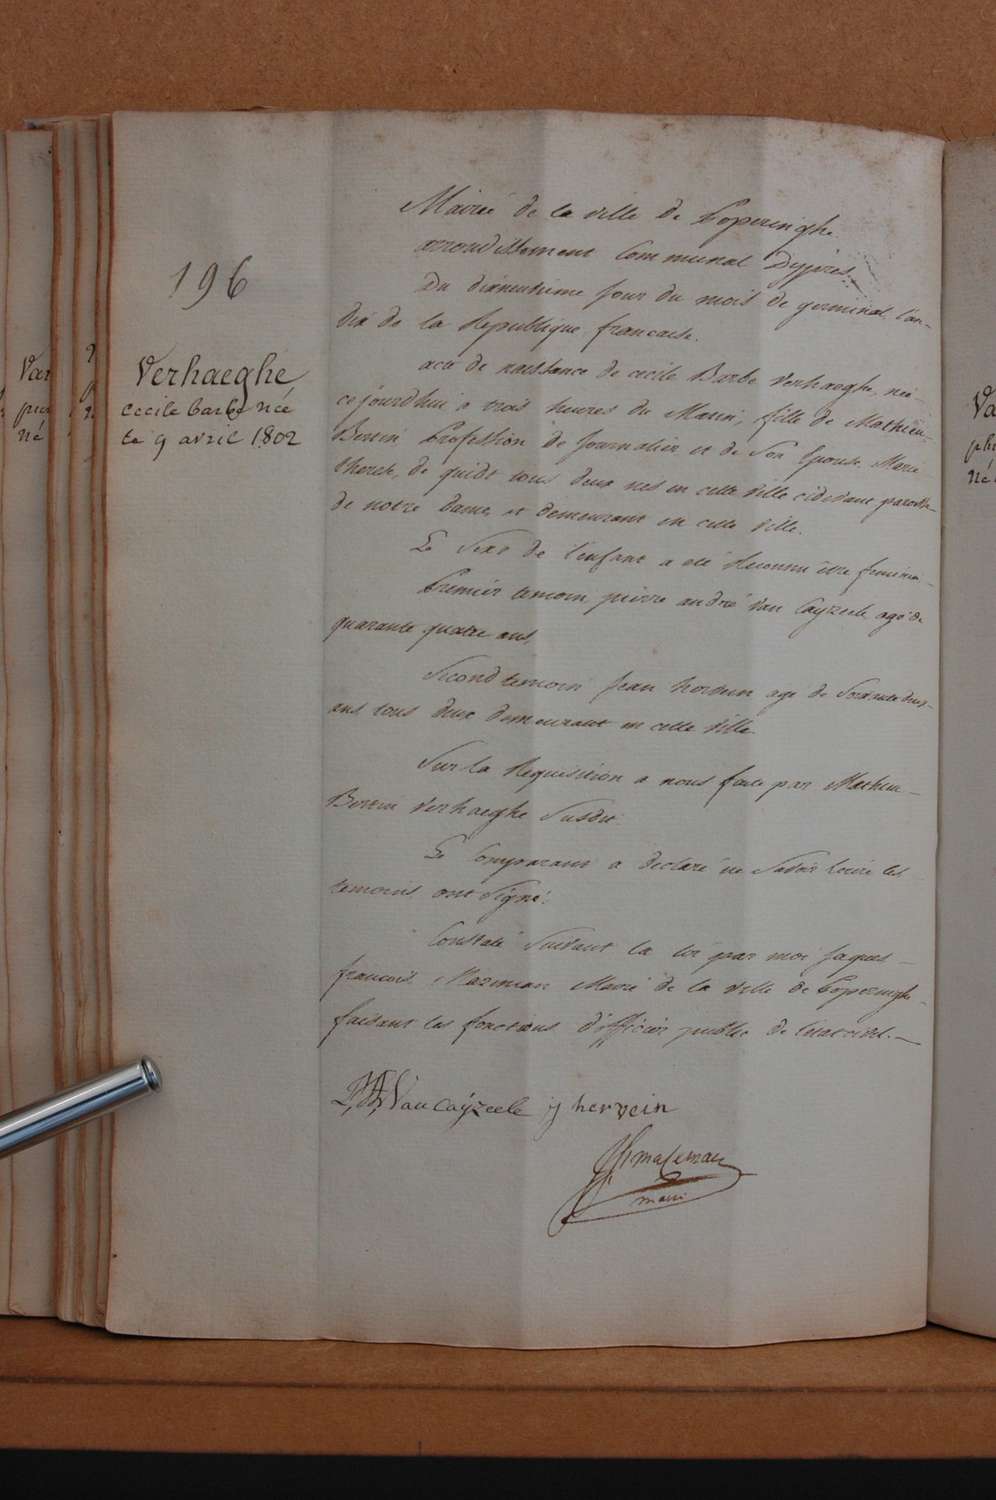 196
Verhaeghe
cecile barbe née
le 9 avril 1802
Mairie de la ville de Poperinghe
arrondissement Communal Dypres
Du dixneuvieme jour du mois de germinal l'an
dix de la Republique francaise.
acte de naissance de cecile Barbe Verhaeghe, née
cejourdhui a trois heures du Matin, fille de Mathieu
Bertin Profession de Journalier et de Son Epouse Marie
therese de quidt tous deux nes en cette ville cidevant paroisse
de notre Dame, et demeurant en cette Ville.
Le Sexe de l'enfant a eté Reconnu être feminin
Premier temoin pierre andré Van Cayzeele agé de
quarante quatre ans,
Second temoin Jean agé de Soixante deux
ans tous deux demeurant en cette Ville
Sur la Requisition a nous faite par Mathieu
Bertin Verhaeghe Susdit
Le Comparant a declaré ne Savoir les
temoins ont Signé.
Constaté Suivant la loi par moi Jaques
francois Mazeman Maire de la Ville de Poperinghe
faisant les fonctions d'officier public de l'état civil.
P,A, Van Cayzeele j hervein
mazeman
maire
Var
né
Va
né